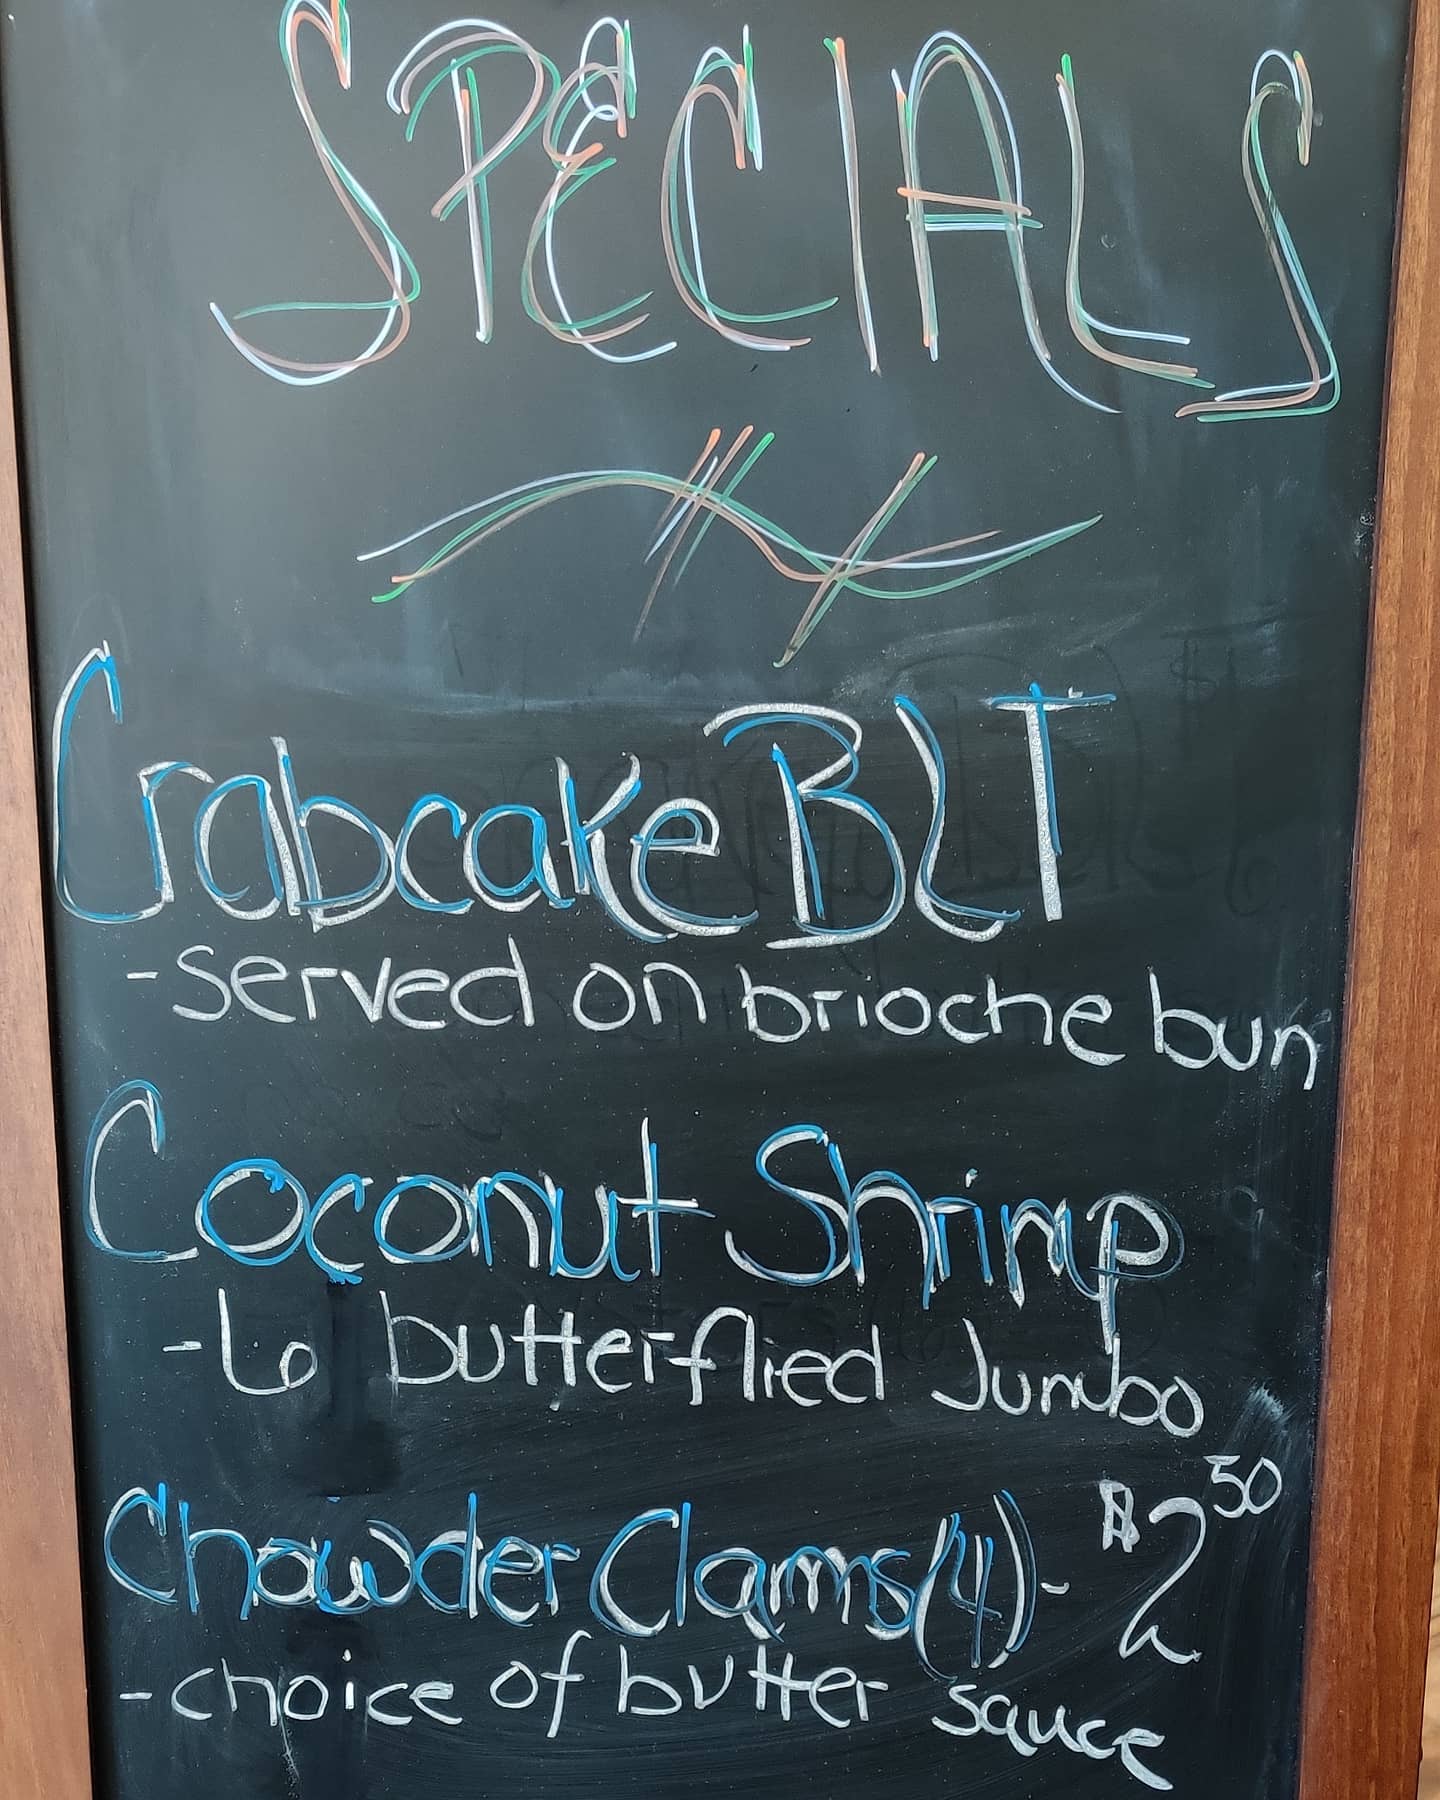 SPECIALS
Crabcake BLT
-served on brioche bun
Coconut Shrimp
-6 butterflied Jumbo
Chowder Clams (4) - $2 50
-choice of butter sauce